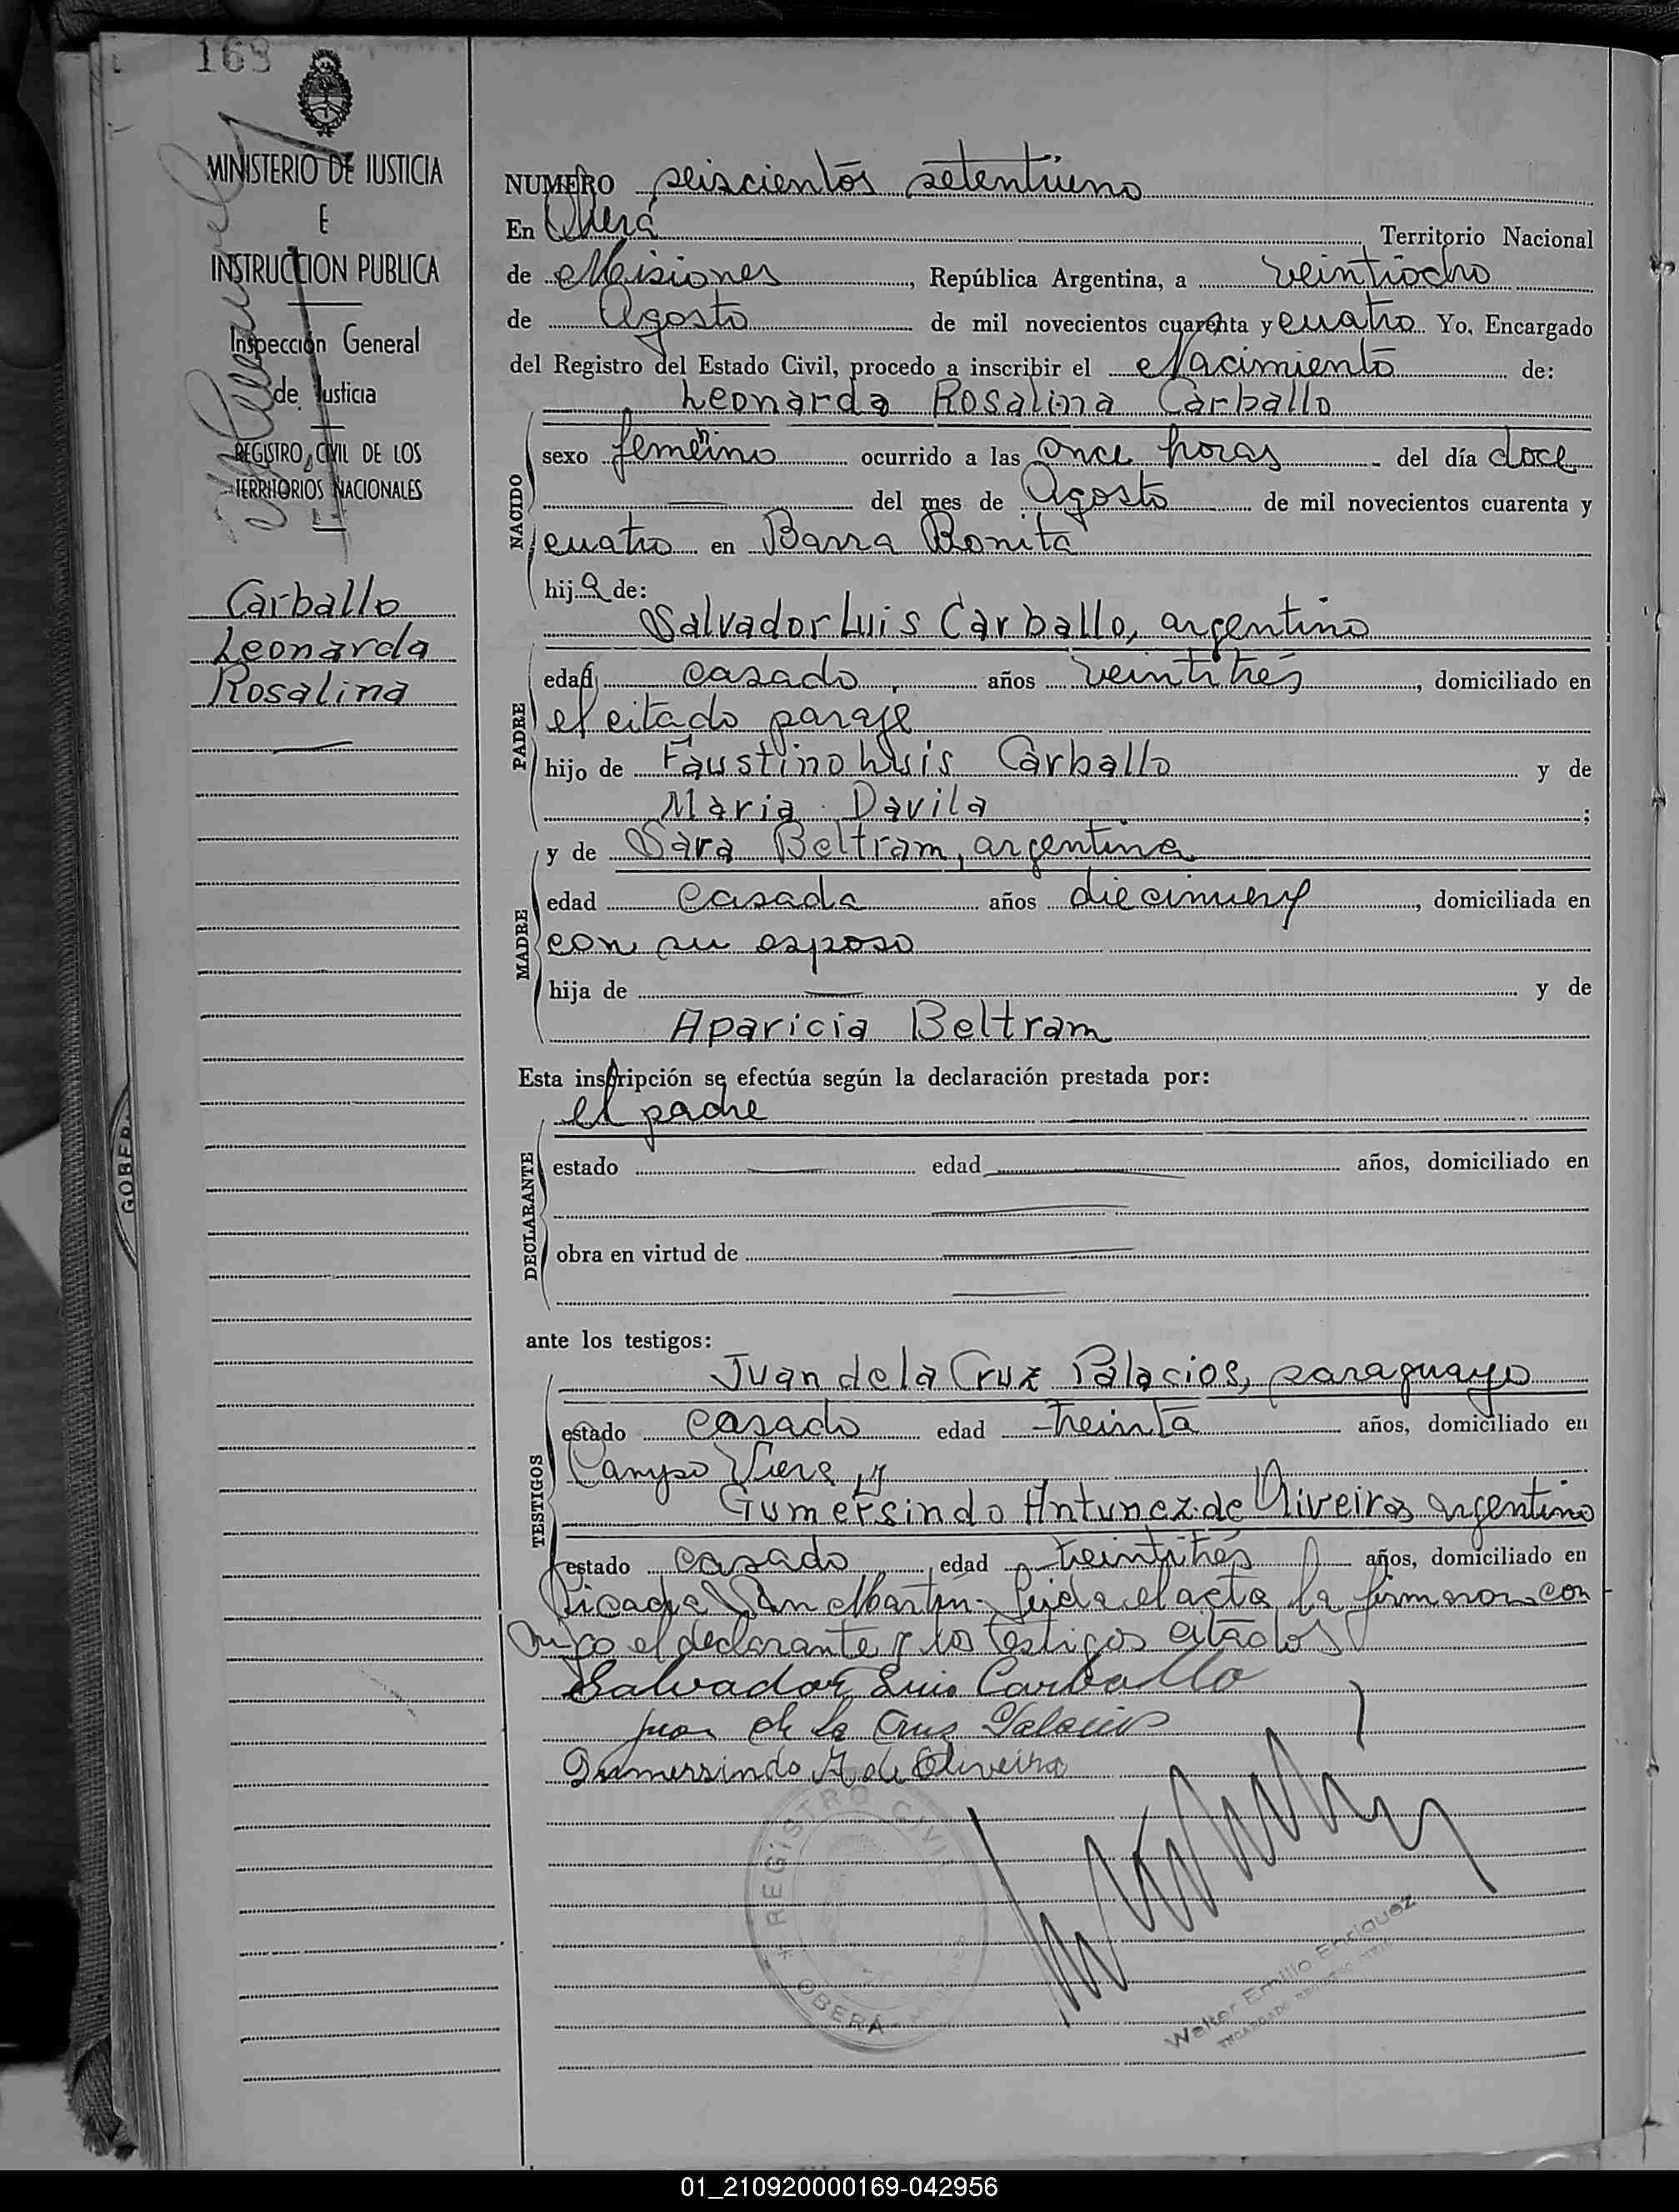 169
MINISTERIO DE JUSTICIA
E
INSTRUCCION PUBLICA
Inspección General
de Justicia
REGISTRO CIVIL DE LOS
TERRITORIOS NACIONALES
Carballo
Leonarda
Rosalina
NUMERO seiscientos setentiuno
En Oberá Territorio Nacional
de Misiones, República Argentina, a veintiocho
de Agosto de mil novecientos cuarenta y cuatro Yo, Encargado
del Registro del Estado Civil, procedo a inscribir el Nacimiento de:
Leonarda Rosalina Carballo
NACIDO
sexo femenino ocurrido a las once horas del día doce
del mes de Agosto de mil novecientos cuarenta y
cuatro en Barra Bonita
hija de:
Salvador Luis Carballo, argentino
PADRE
edad casado, años veintitrés, domiciliado en
el citado paraje
hijo de Faustino Luis Carballo y de
Maria Davila;
MADRE
y de Sara Beltram, argentina
edad casada años diecinueve, domiciliada en
con su esposo
hija de — y de
Aparicia Beltram
Esta inscripción se efectúa según la declaración prestada por:
el padre
DECLARANTE
estado — edad — años, domiciliado en
obra en virtud de —
ante los testigos:
Juan de la Cruz Palacios, paraguayo
TESTIGOS
estado casado edad treinta años, domiciliado en
Campo Viera, y
Gumersindo Antunez de Oliveira, argentino
estado casado, edad treintitrés años, domiciliado en
Picada San Martin. Leida el acta la firmaron con
migo el declarante y los testigos citados
Salvador Luis Carballo
Juan de la Cruz Palacios
Gumersindo A. de Oliveira
REGISTRO CIVIL
OBERÁ
Walter Emilio Enriquez
ENCARGADO REGISTRO CIVIL
GOBER
01_210920000169-042956